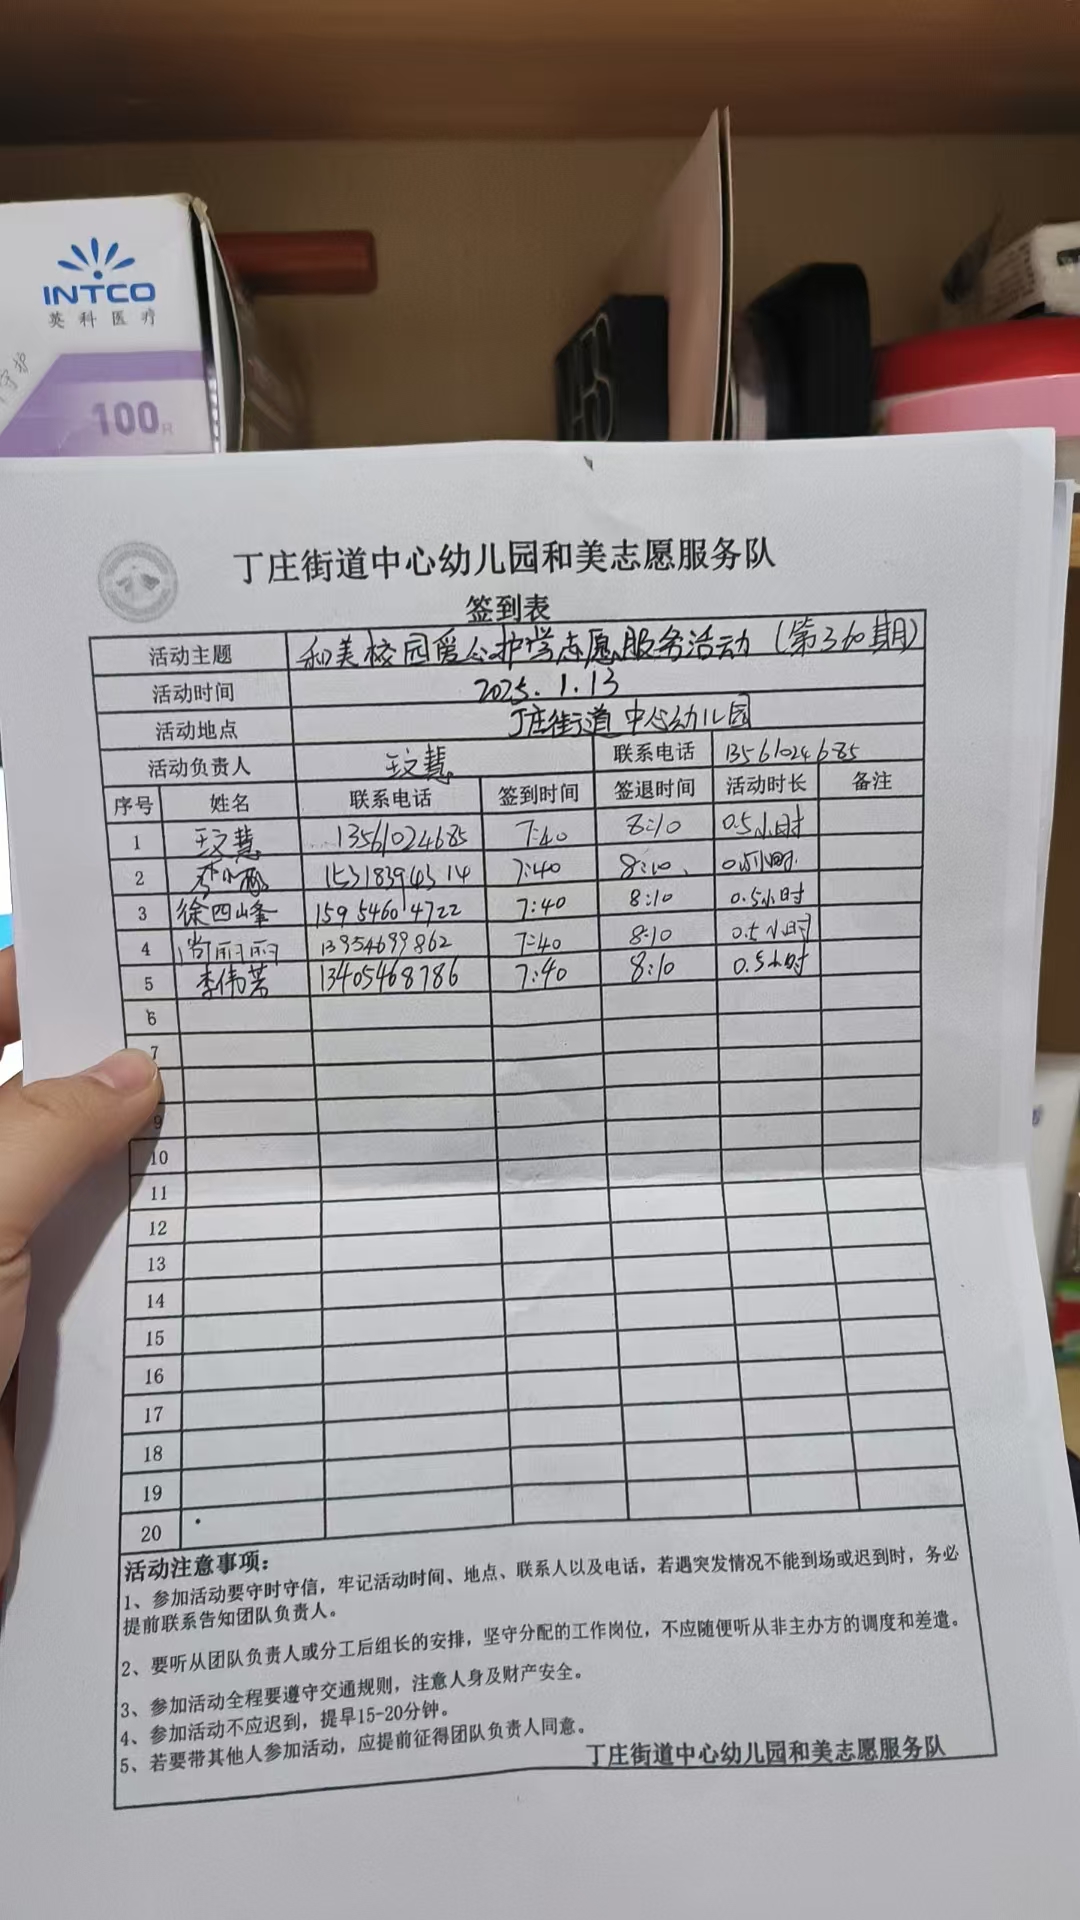 INTCO
英科医疗
100
丁庄街道中心幼儿园和美志愿服务队
签到表
活动主题 和美校园爱心护学志愿服务活动（第360期）
活动时间 2025.1.13
活动地点 丁庄街道中心幼儿园
活动负责人 王文慧 联系电话 13561024685
序号 姓名 联系电话 签到时间 签退时间 活动时长 备注
1 王文慧 13561024685 7:40 8:10 0.5小时
2 15318394314 7:40 8:10 0.5小时
3 徐四峰 15954604722 7:40 8:10 0.5小时
4 尚丽丽 13954699862 7:40 8:10 0.5小时
5 李伟芳 13405468786 7:40 8:10 0.5小时
6
7
9
10
11
12
13
14
15
16
17
18
19
20
活动注意事项：
1、参加活动要守时守信，牢记活动时间、地点、联系人以及电话，若遇突发情况不能到场或迟到时，务必
提前联系告知团队负责人。
2、要听从团队负责人或分工后组长的安排，坚守分配的工作岗位，不应随便听从非主办方的调度和差遣。
3、参加活动全程要遵守交通规则，注意人身及财产安全。
4、参加活动不应迟到，提早15-20分钟。
5、若要带其他人参加活动，应提前征得团队负责人同意。
丁庄街道中心幼儿园和美志愿服务队